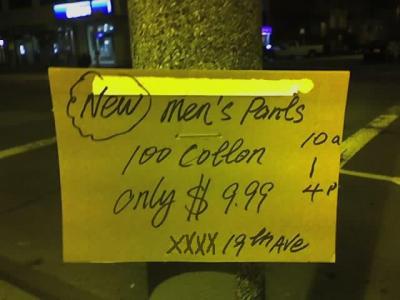 New Men's Pants
100 Cotton
only $ 9.99
10a
|
4p
XXXX 19th Ave